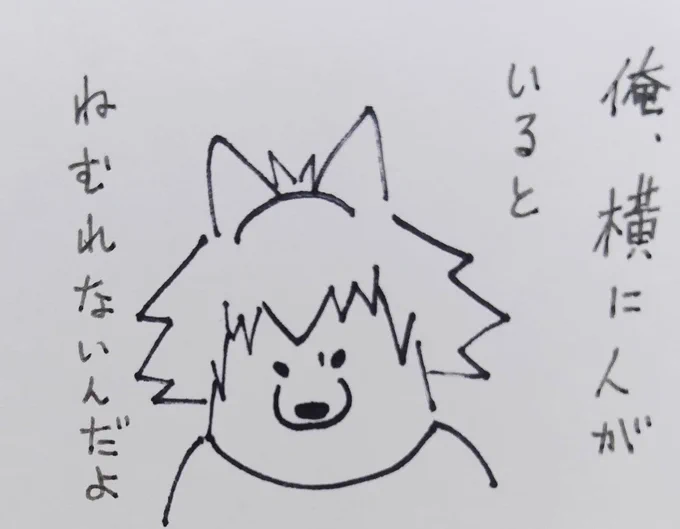 俺、横に人が
いると
ねむれないんだよ